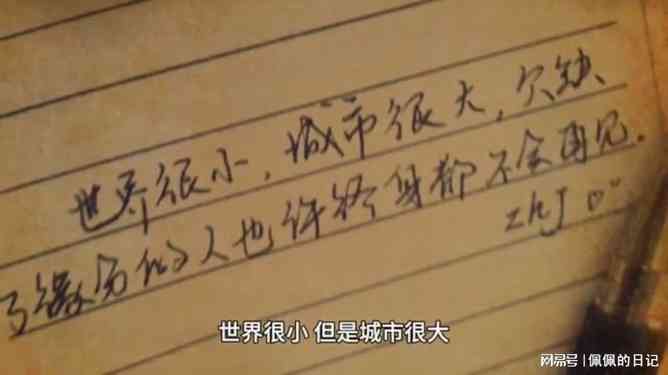 世界很小,城市很大,欠缺
了缘分的人也许终身都不会再见.
ZhJ
世界很小 但是城市很大
网易号 | 佩佩的日记